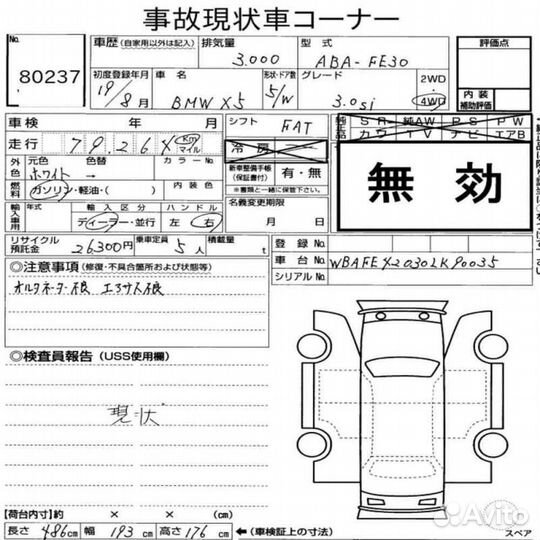 事故現状車コーナー
No. 80237
車歴 (自家用以外は記入) 排気量 3.000 型式 ABA-FE30
初度登録年月 19/8月 車名 BMW X5 形状・ドア数 5/W グレード 3.0si 2WD 4WD
評価点
内装補助評価
車検 年 月 シフト FAT
走行 79,264 km マイル 冷房
純正品 SR 純AW PS PW
カワ TV ナビ エアB
外色 元色 ホワイト 色替 → カラーNo.
燃料 ガソリン・軽油・( ) 内装色
新車整備手帳(保証書付) 有・無
※書類と一緒に保管下さい。
無効
輸入車用 年式 輸入区分 ディーラー・並行 ハンドル 左 右
名義変更期限 月 日
リサイクル預託金 26,300円 乗車定員 5人 積載量 t
登録No.
車台No. WBAFE42030LK90035
シリアルNo.
◎注意事項 (修復・不具合箇所および状態等)
オルタネーター不良 エアサス不良
◎検査員報告 (USS使用欄)
現状
【荷台内寸】約 × × (cm)
長さ 486cm 幅 193cm 高さ 176cm ←(車検証上の寸法)
スペア
Avito